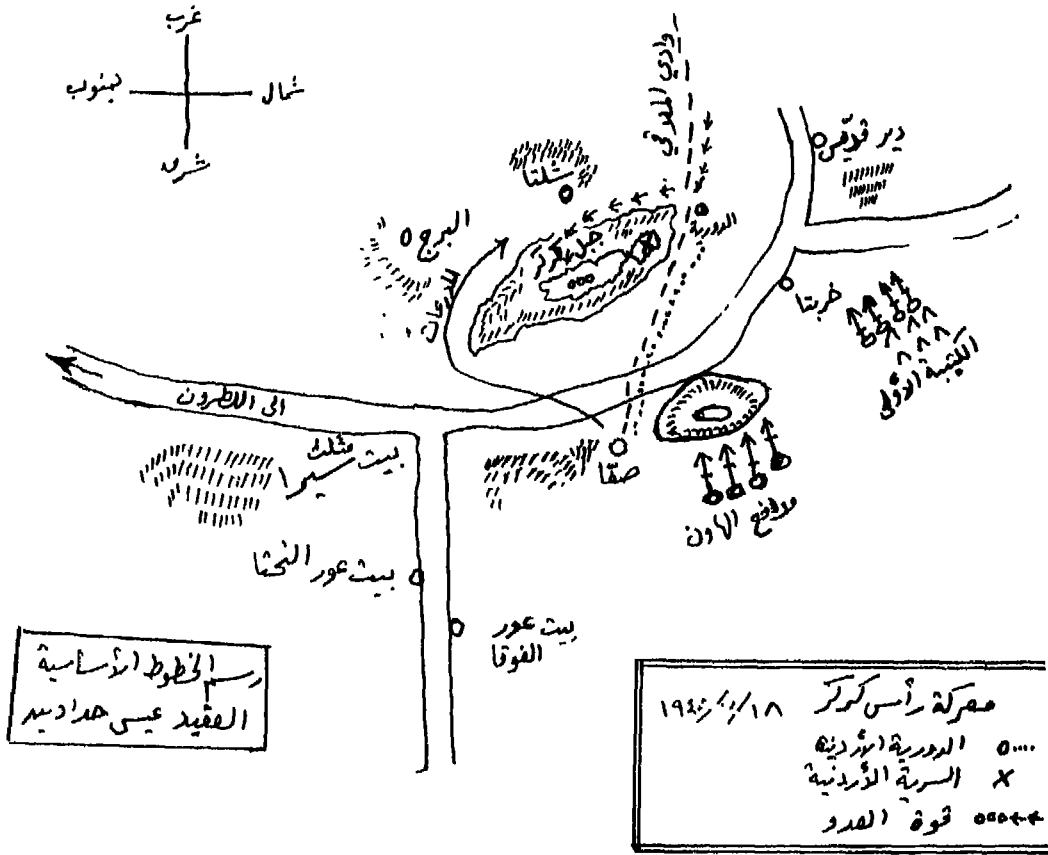 غرب
جنوب
شمال
شرق
وادي الملاقي
دير قدّيس
شلتا
البرج
جبل كركر
الدورية
المدرعات
خربتا
الكتيبة الأولى
الى اللطرون
مثلث
بيت سيرا
صفّا
مدافع الهاون
بيت عور التحتا
بيت عور
الفوقا
رسم الخطوط الأساسية
العقيد عيسى حدادين
معركة رأس كركر
الدورية الأردنية
السرية الأردنية
قوة العدو